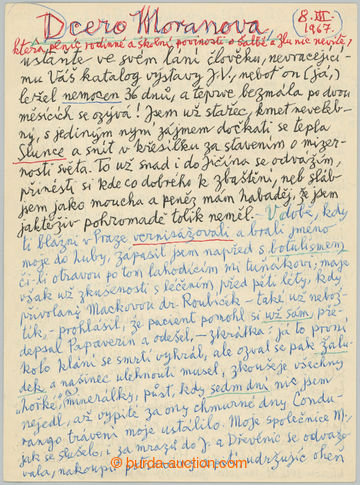 Dcero Moranova,
8. III. 1967.
která plníc rodinné a školní povinosti o Salbě a Jlu nic nevíte,
ustaňte ve svém lání člověku, nevracející-
mu Váš katalog výstavy J.V., neboť on (já,)
ležel nemocen 36 dnů, a teprve bezmála po dvou
měsících se ozývá! Jsem už stařec, kmet neveleb-
ný, s jediným nyní zájmem dočkati se tepla
Slunce a snít v křesílku za stavením o mizer-
nosti světa. To už snad i do Jičína se odvážím,
přinésti si kdeco dobrého k zbaštění, neb sláb
jsem jako moucha a peněz mám habaděj, že jsem
jaktěživ pohromadě tolik neměl. – V době, kdy
ti blázni v Praze vernisážovali a brali jméno
moje do huby, zápasil jsem napřed s botulismem
či-li otravou po tom lahodícím mi tuňákovi; maje
však už zkušenosti s léčením před pěti léty, kdy
přivolaný Mackovou dr. Roubíček – také už nebož-
tík, – prohlásil, že pacient pomohl si už sám, pře-
depsal Papaverin a odešel, – zkrátka: já to první
kolo klání se smrtí vyhrál, ale ozval se pak žalu-
dek a našinec ulehnouti musel, zkoušeje všechny
hořké minerálky, půst, kdy sedm dní nic jsem
nejedl, až vypité za ony chmurné dny Condu-
rango trávení moje ustálilo. Moje společnice M.
jak se slušelo, i za mrazů do J. a Dřevěnic se odvažo-
vala, nakoupit udržujíc oheň
burda-auction.com